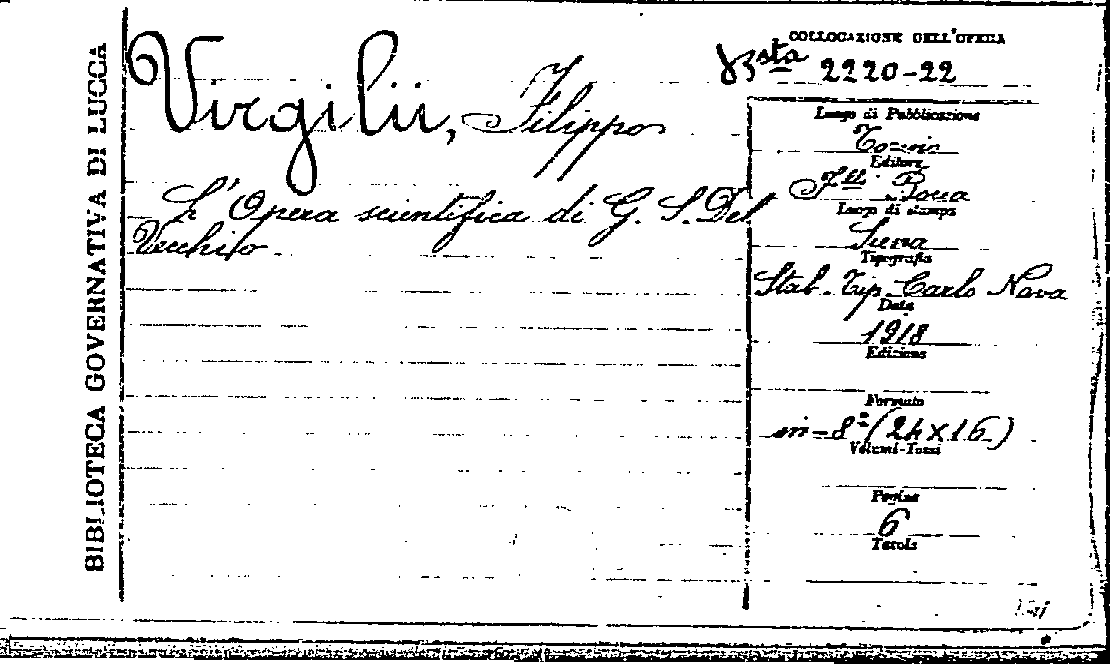 BIBLIOTECA GOVERNATIVA DI LUCCA
Virgilii, Filippo
L'Opera scientifica di G. S. Del
Vecchio.
COLLOCAZIONE DELL'OPERA
Bsta 2220-22
Luogo di Pubblicazione
Torino
Editore
F.lli Bocca
Luogo di stampa
Siena
Tipografia
Stab. Tip. Carlo Nava
Data
1918
Edizione
Formato
in-8° (24x16)
Volumi-Tomi
Pagine
6
Tavole